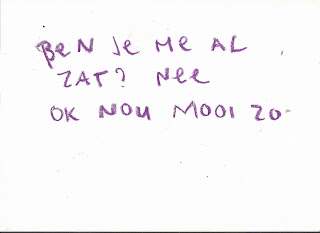 BeN Je Me AL
ZAT? Nee
OK NOU MOOI ZO